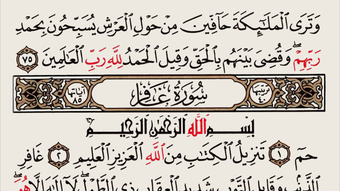 وَتَرَى ٱلْمَلَـٰٓئِكَةَ حَآفِّينَ مِنْ حَوْلِ ٱلْعَرْشِ يُسَبِّحُونَ بِحَمْدِ
رَبِّهِمْ ۖ وَقُضِىَ بَيْنَهُم بِٱلْحَقِّ وَقِيلَ ٱلْحَمْدُ لِلَّهِ رَبِّ ٱلْعَـٰلَمِينَ ﴿٧٥﴾
سُورَةُ غَافِرٍ
بِسْمِ ٱللَّهِ ٱلرَّحْمَـٰنِ ٱلرَّحِيمِ
حمٓ ﴿١﴾ تَنزِيلُ ٱلْكِتَـٰبِ مِنَ ٱللَّهِ ٱلْعَزِيزِ ٱلْعَلِيمِ ﴿٢﴾ غَافِرِ
ٱلذَّنۢبِ وَقَابِلِ ٱلتَّوْبِ شَدِيدِ ٱلْعِقَابِ ذِى ٱلطَّوْلِ ۖ لَآ إِلَـٰهَ إِلَّا هُوَ